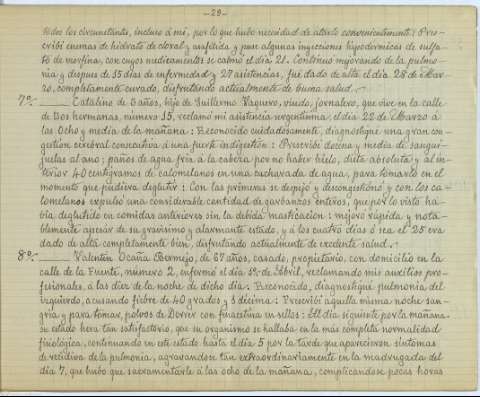 -29-
todos los circunstantes, incluso á mí, por lo que hubo necesidad de atarlo convenientemente: Pres-
cribí enemas de hidrato de cloral y asafétida y puse algunas inyecciones hipodérmicas de sulfa-
to de morfina, con cuyos medicamentos se calmó el día 21. Continuó mejorando de la pulmo-
nía y después de 15 días de enfermedad y 27 asistencias, fué dado de alta el día 28 de Mar-
zo, completamente curado, disfrutando actualmente de buena salud.
7º- Catalino de 5 años, hijo de Guillermo Vaquero, viudo, jornalero, que vive en la calle
de Dos hermanas, número 15, reclamó mi asistencia urgentísima el día 22 de Marzo á
las ocho y media de la mañana: Reconocido cuidadosamente, diagnostiqué una gran con-
gestión cerebral consecutiva á una fuerte indigestión: Prescribí docena y media de sangui-
juelas al ano; paños de agua fría á la cabeza por no haber hielo, dieta absoluta y al in-
terior 40 centigramos de calomelanos en una cucharada de agua, para tomarlo en el
momento que pudiera deglutir: Con las primeras se despejó y descongestionó y con los ca-
lomelanos expulsó una considerable cantidad de garbanzos enteros, que por lo visto ha-
bía deglutido en comidas anteriores sin la debida masticación: mejoró rápida y nota-
blemente apesar de su gravísimo y alarmante estado, y á los cuatro días ó sea el 25 era
dado de alta completamente bien, disfrutando actualmente de excelente salud.
8º- Valentín Ocaña Bermejo, de 67 años, casado, propietario, con domicilio en la
calle de la Fuente, número 2, enfermó el día 1º de Abril, reclamando mis auxilios pro-
fesionales, á las diez de la noche de dicho día: Reconocido, diagnostiqué pulmonía del
izquierdo, acusando fiebre de 40 grados y 3 décimas: Prescribí aquella misma noche san-
gría y para tomar, polvos de Dover con fenacetina en sellos: El día siguiente por la mañana
su estado era tan satisfactorio, que su organismo se hallaba en la más completa normalidad
fisiológica, continuando en este estado hasta el día 5 por la tarde que aparecieron síntomas
de recidiva de la pulmonía, agravándose tan extraordinariamente en la madrugada del
día 7, que hubo que sacramentarle á las ocho de la mañana, complicándose pocas horas